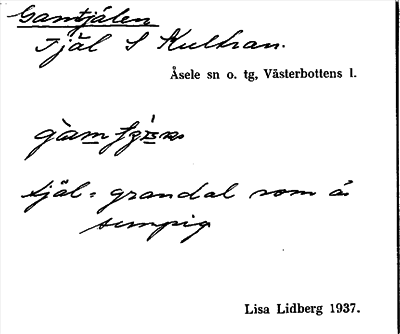 Gamtjälen
Tjäl S Kultran.
Åsele sn o. tg, Västerbottens l.
tjäl = grandal som är
sumpig
Lisa Lidberg 1937.